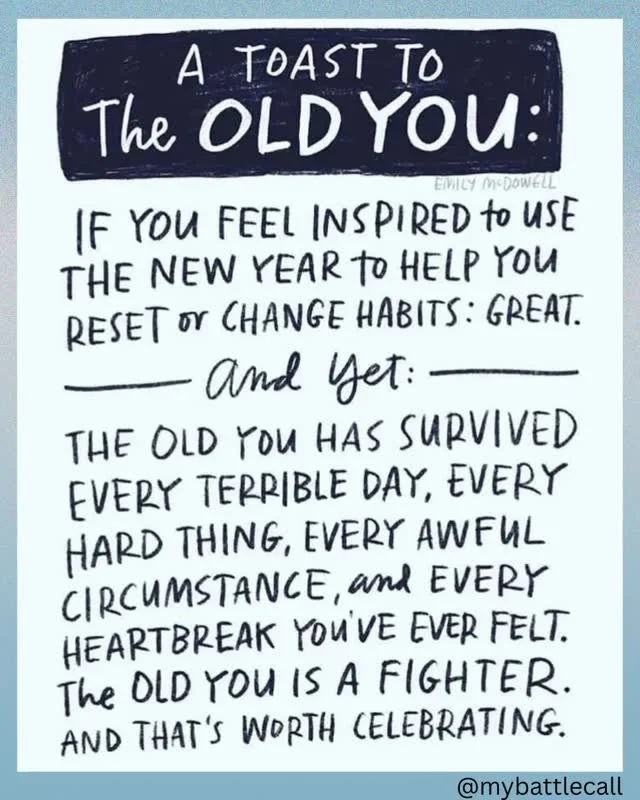 A TOAST TO
The OLD YOU:
EMILY McDOWELL
IF YOU FEEL INSPIRED to USE
THE NEW YEAR to HELP YOU
RESET or CHANGE HABITS: GREAT.
and yet:
THE OLD YOU HAS SURVIVED
EVERY TERRIBLE DAY, EVERY
HARD THING, EVERY AWFUL
CIRCUMSTANCE, and EVERY
HEARTBREAK YOU'VE EVER FELT.
The OLD YOU IS A FIGHTER.
AND THAT'S WORTH CELEBRATING.
@mybattlecall